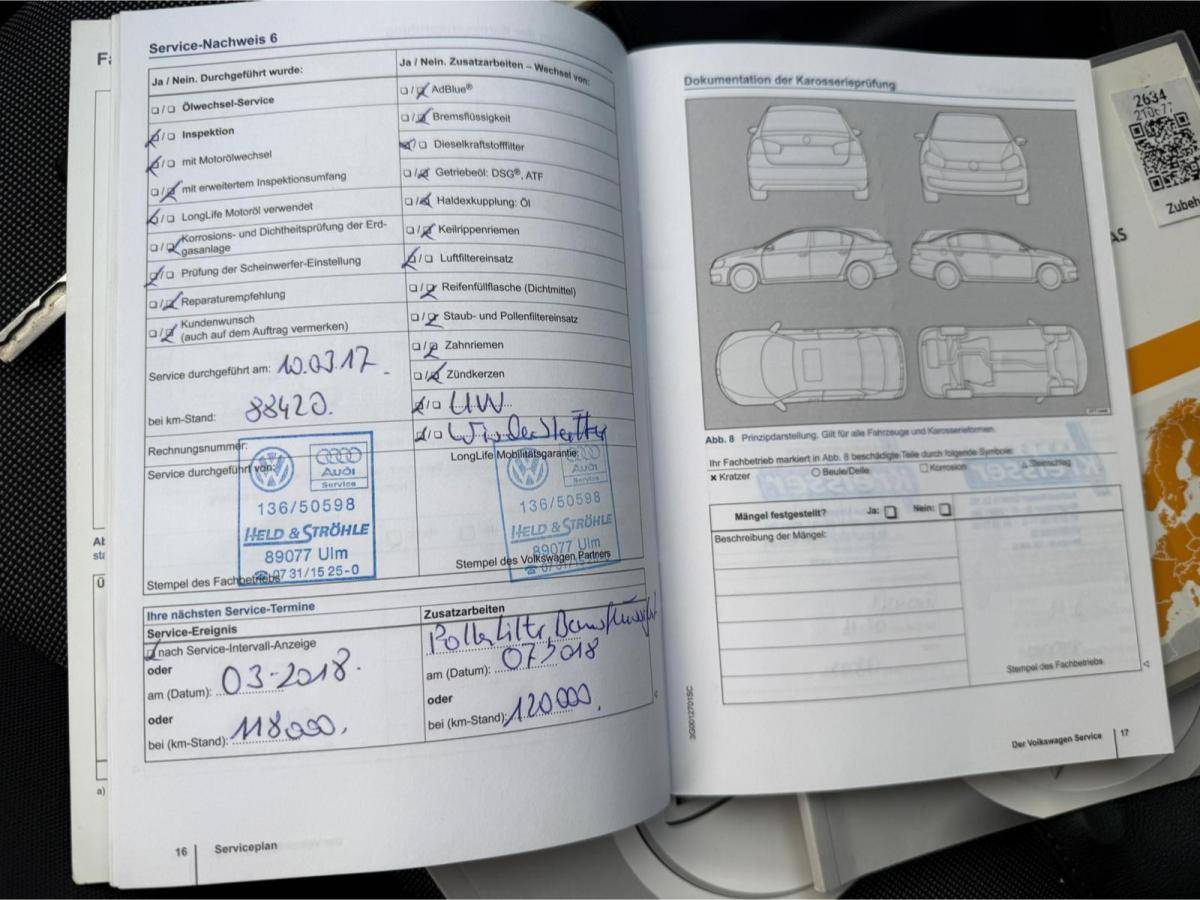 Service-Nachweis 6
Ja / Nein. Durchgeführt wurde:
❏/❏ Ölwechsel-Service
❏/❏ Inspektion
❏/❏ mit Motorölwechsel
❏/❏ mit erweitertem Inspektionsumfang
❏/❏ LongLife Motoröl verwendet
❏/❏ Korrosions- und Dichtheitsprüfung der Erd-
gasanlage
❏/❏ Prüfung der Scheinwerfer-Einstellung
❏/❏ Reparaturempfehlung
❏/❏ Kundenwunsch
(auch auf dem Auftrag vermerken)
Service durchgeführt am: 10.03.17
bei km-Stand: 88420.
Rechnungsnummer:
Service durchgeführt von:
Audi
Service
136/50598
HELD & STRÖHLE
89077 Ulm
☎ 0731/15 25-0
Stempel des Fachbetriebs
Ja / Nein. Zusatzarbeiten – Wechsel von:
❏/❏ AdBlue®
❏/❏ Bremsflüssigkeit
❏/❏ Dieselkraftstofffilter
❏/❏ Getriebeöl: DSG®, ATF
❏/❏ Haldexkupplung: Öl
❏/❏ Keilrippenriemen
❏/❏ Luftfiltereinsatz
❏/❏ Reifenfüllflasche (Dichtmittel)
❏/❏ Staub- und Pollenfiltereinsatz
❏/❏ Zahnriemen
❏/❏ Zündkerzen
❏/❏ UW
❏/❏
LongLife Mobilitätsgarantie:
Audi
Service
136/50598
HELD & STRÖHLE
89077 Ulm
Stempel des Volkswagen Partners
Ihre nächsten Service-Termine
Service-Ereignis
❏ nach Service-Intervall-Anzeige
oder
am (Datum): 03-2018.
oder
bei (km-Stand): 118000.
Zusatzarbeiten
am (Datum):
oder
bei (km-Stand): 120000.
16
Serviceplan
Dokumentation der Karosserieprüfung
Abb. 8 Prinzipdarstellung. Gilt für alle Fahrzeuge und Karosserieformen.
Ihr Fachbetrieb markiert in Abb. 8 beschädigte Teile durch folgende Symbole:
× Kratzer ○ Beule/Delle ❏ Korrosion △ Steinschlag
Mängel festgestellt? Ja: ❏ Nein: ❏
Beschreibung der Mängel:
Stempel des Fachbetriebs
3G0012701SC
Der Volkswagen Service
17
2634
Zubeh
AS